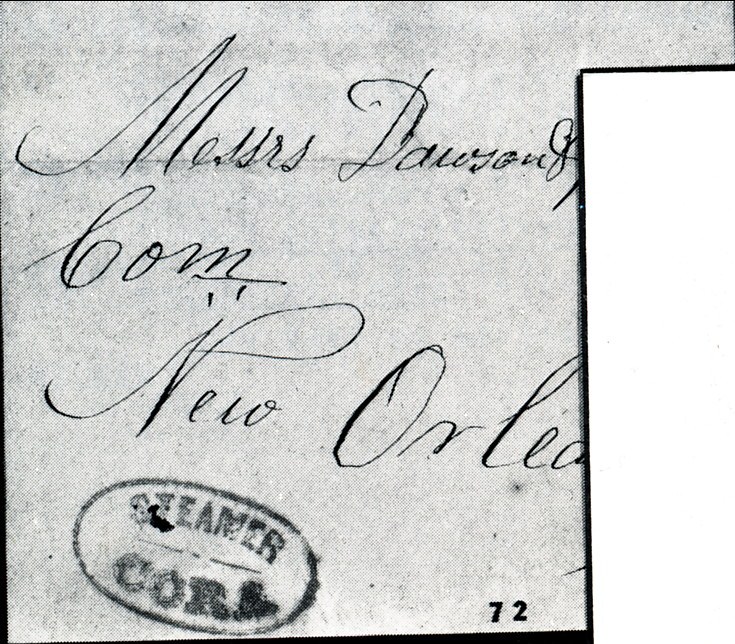 Messrs Dawson &
Com
New Orlea
STEAMER
CORA
72